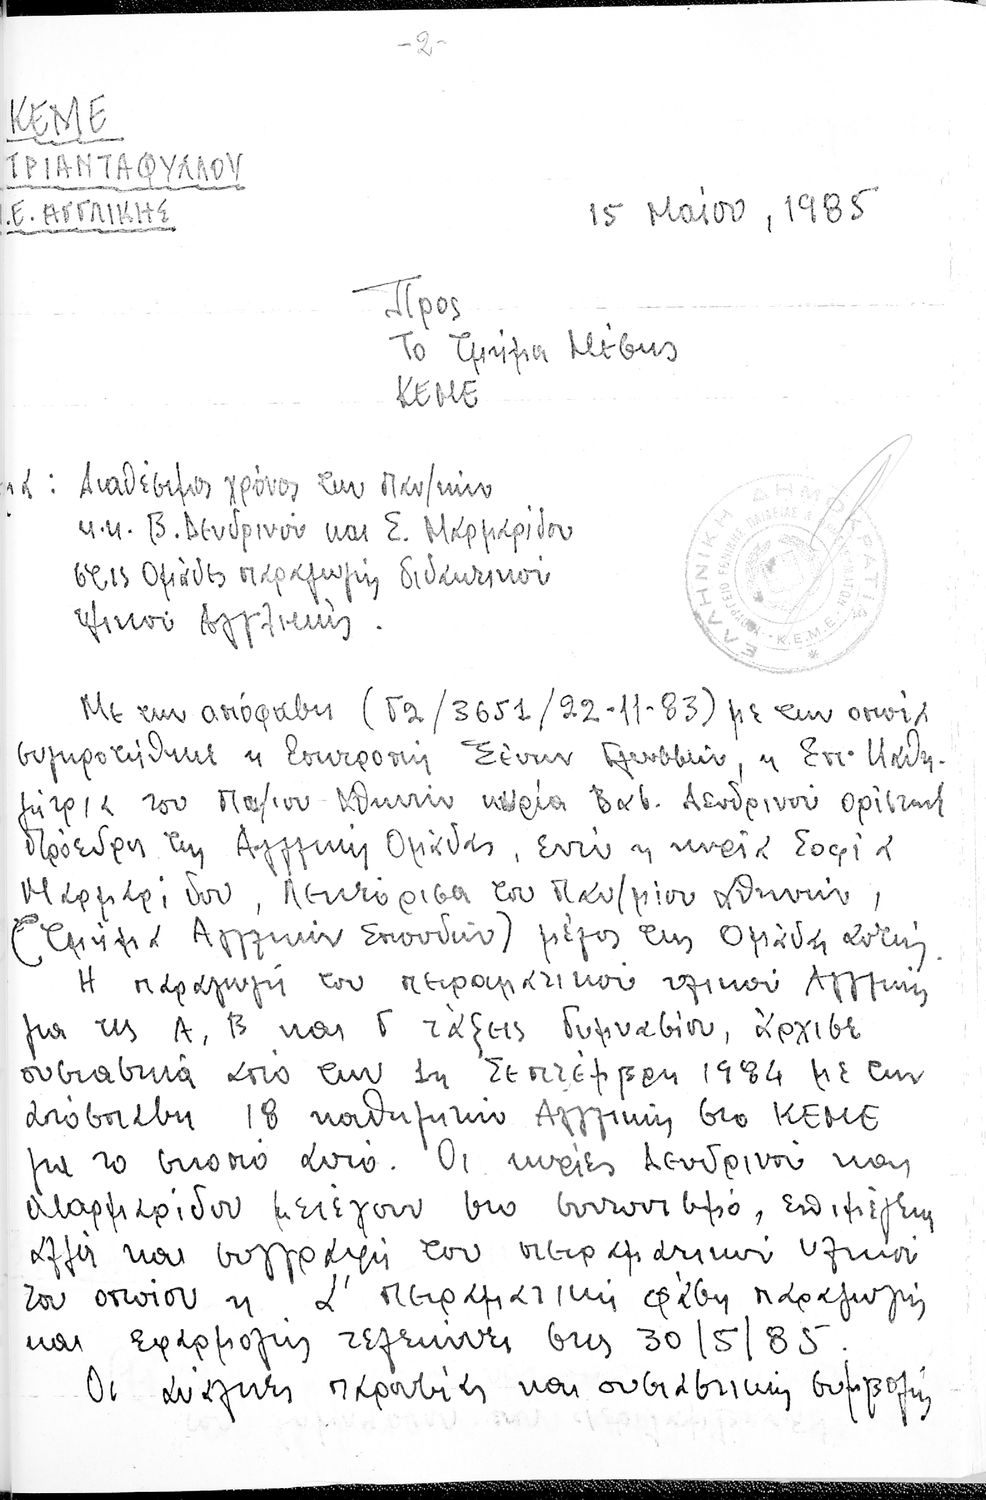 -2-
ΚΕΜΕ
ΤΡΙΑΝΤΑΦΥΛΛΟΥ
.Ε. ΑΓΓΛΙΚΗΣ
15 Μαίου, 1985
Προς
Το Τμήμα Μέσης
ΚΕΜΕ
: Διαθέσιμος χρόνος των Παν/κών
κ.κ. Β. Δενδρινού και Σ. Μαρμαρίδου
στις Ομάδες παραγωγής διδακτικού
υλικού Αγγλικής.
ΕΛΛΗΝΙΚΗ ΔΗΜΟΚΡΑΤΙΑ
Κ.Ε.Μ.Ε.
Με την απόφαση (Γ2/3651/22-11-83) με την οποία
συγκροτήθηκε η Επιτροπή Ξένων Γλωσσών, η Επ. Καθη-
γήτρια του Παν/μίου Αθηνών κυρία Βασ. Δενδρινού ορίστηκε
Πρόεδρος της Αγγλικής Ομάδας, ενώ η κυρία Σοφία
Μαρμαρίδου, Λεκτόρισα του Παν/μίου Αθηνών,
(Τμήμα Αγγλικών Σπουδών) μέλος της Ομάδας αυτής.
Η παραγωγή του πειραματικού υλικού Αγγλικής
για τις Α, Β και Γ τάξεις Γυμνασίου, άρχισε
ουσιαστικά από την 1η Σεπτέμβρη 1984 με την
απόσπαση 18 καθηγητών Αγγλικής στο ΚΕΜΕ
για το σκοπό αυτό. Οι κυρίες Δενδρινού και
Μαρμαρίδου μετέχουν στο συντονισμό, επιμέλεια
αλλά και συγγραφή του πειραματικού υλικού
του οποίου η Α' πειραματική φάση παραγωγής
και εφαρμογής τελειώνει στις 30/5/85.
Οι ανάγκες παρουσίας και ουσιαστικής συμβολής